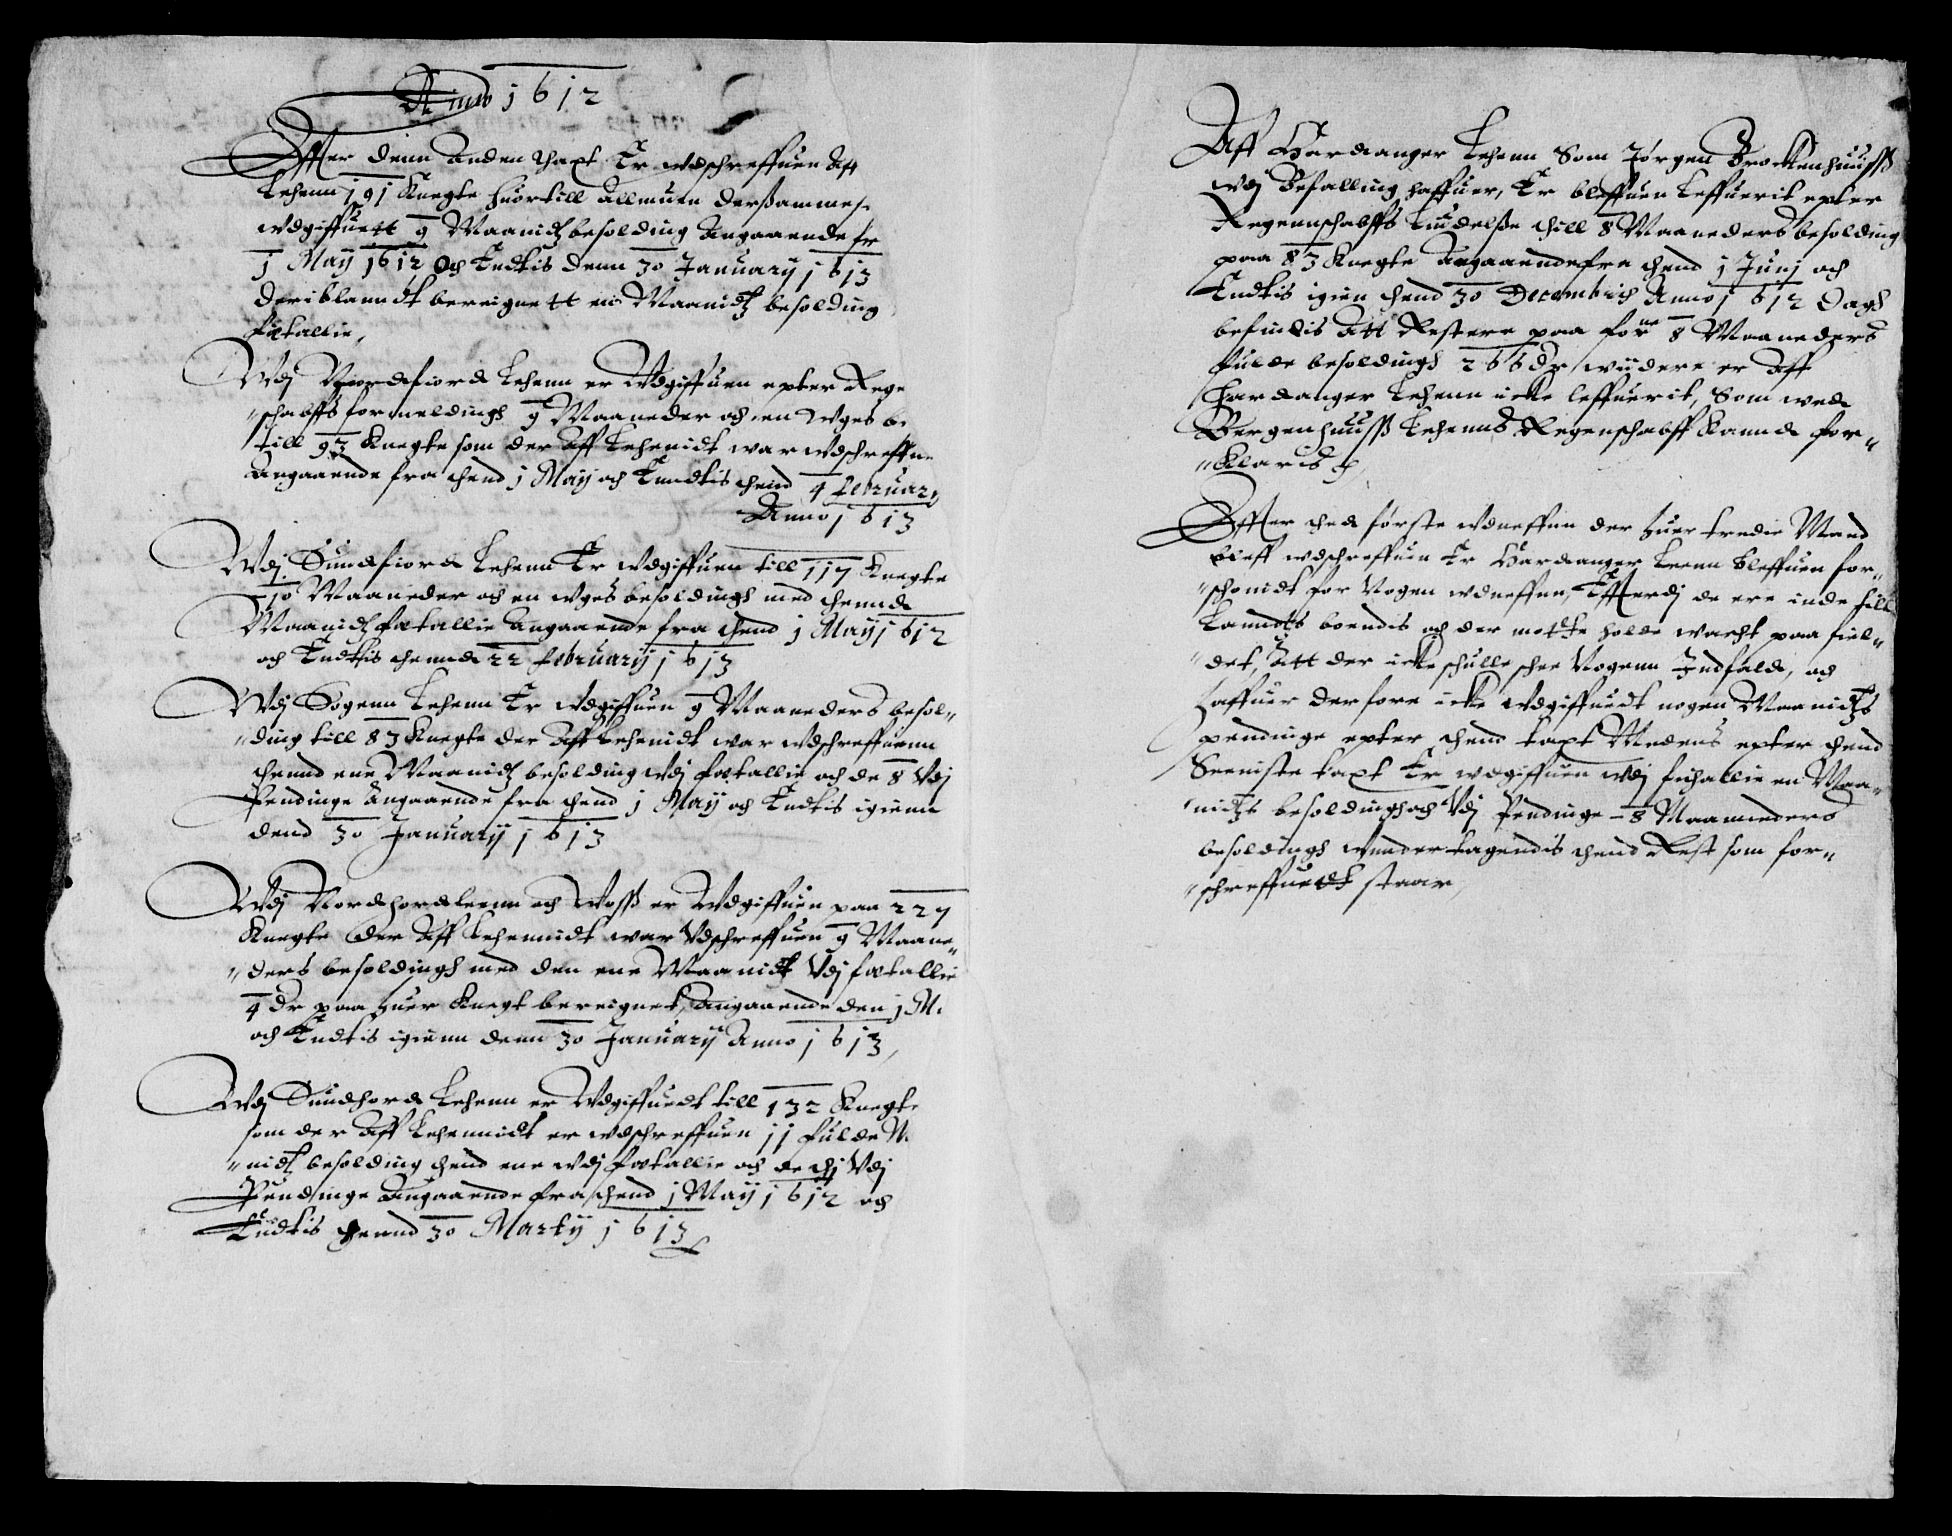 Anno 1612
Effter denn anden Taxt Er wdschreffuen Aff
Lehenn 191 Knegte huortill Allmuen dersammes
wdgiffuett 9 Maanidz besolding Angaaende fr
1 Maij 1612 Och Endtis denn 30 Januarij 1613
Deriblanndt bereignett en Maanidtz besolding
fitallie,
Wdj Nordfiord Lehenn er Wdgiffuen epter Rege
schabffs formeldingh 9 Maaneder och en Wges be
till 93 Knegte som der Aff Lehenidt war wdschreffne
Angaaende fra thend 1 Maij och Enndtis thend 4 februarj
Anno 1613
Wdj Sundfiord Lehenn Er wdgiffuen till 117 Knegte
10 Maaneder och en wges besoldingh med thennd
Maanidz fatallie Angaaende fra thend 1 Maij 1612
och Endtis thennd 22 februarij 1613
Wdj Sogenn Lehenn Er wdgiffuen 9 Maaneders besol„
„ding till 83 Knegte der Aff Lehenidt war wdschreffuenn
thennd ene Maanidz besolding wdj fatallie och de 8 Vdj
Pendinge Angaaende fra thend 1 Maij och Endtis igienn
dend 30 Januarij 1613
Wdj Nordhordleenn och Woss er Wdgiffuen paa 227
Knegte der Aff Lehennidt war Vdschreffuen 9 Maane„
„ders besoldingh med den ene Maanidt Vdj fatallie
4 dr paa huer Knegt bereignet, Angaaende den 1 M.
och Endtis igienn denn 30 Januarij Anno 1613,
Wdj Sundhord Lehenn er Wdgiffuedt till 132 Knegte
som der Aff Lehennidt er wdschreffuen 11 fulde M
„nidz besolding thend ene wdj fatallie och de thj Vdj
Pendinge Angaaende fra thend 1 Maij 1612 och
Endtis thennd 30 Martij 1613
Aff Hardanger Lehenn Som Jørgen Brockenhuuss
wdj Befalling haffuer, Er bleffuen Leffuerit epter
Regennschabffs Liudelsse thill 8 Maaneders besolding
paa 83 Knegte Angaaende fra thend 1 Junj och
Endtis igien thend 30 Decembris Anno 1612 Dogh
befindis Att Restere paa forne 8 Maaneders
fulde besoldingh 266 dr widere er Aff
Hardanger Lehenn icke leffuerit, Som wed
Bergenhuuss Lehenns Regenschabff kannd for„
„klaris
Effter thed første wdneffen der huer tredie Mand
bleff wdschreffuen Er Hardanger Leenn bleffuen for„
„schonidt for Nogen wdneffne, Efterdj de ere inde till
Lanndts boendis och der motte holde wacht paa fiel„
„det, Att der icke schulle schee Nogenn Indfald, och
haffuer derfore icke wdgiffuedt nogen Maanidtz
pendinge epter thend taxt Medens epter thend
Seeniste taxt Er wdgiffuen wdj fittallie en Maa„
„nidtz besoldingh och Vdj Pendinge 8 Maanneders
besoldingh wndertagendis thend Rest som for„
„schreffuedt staar,